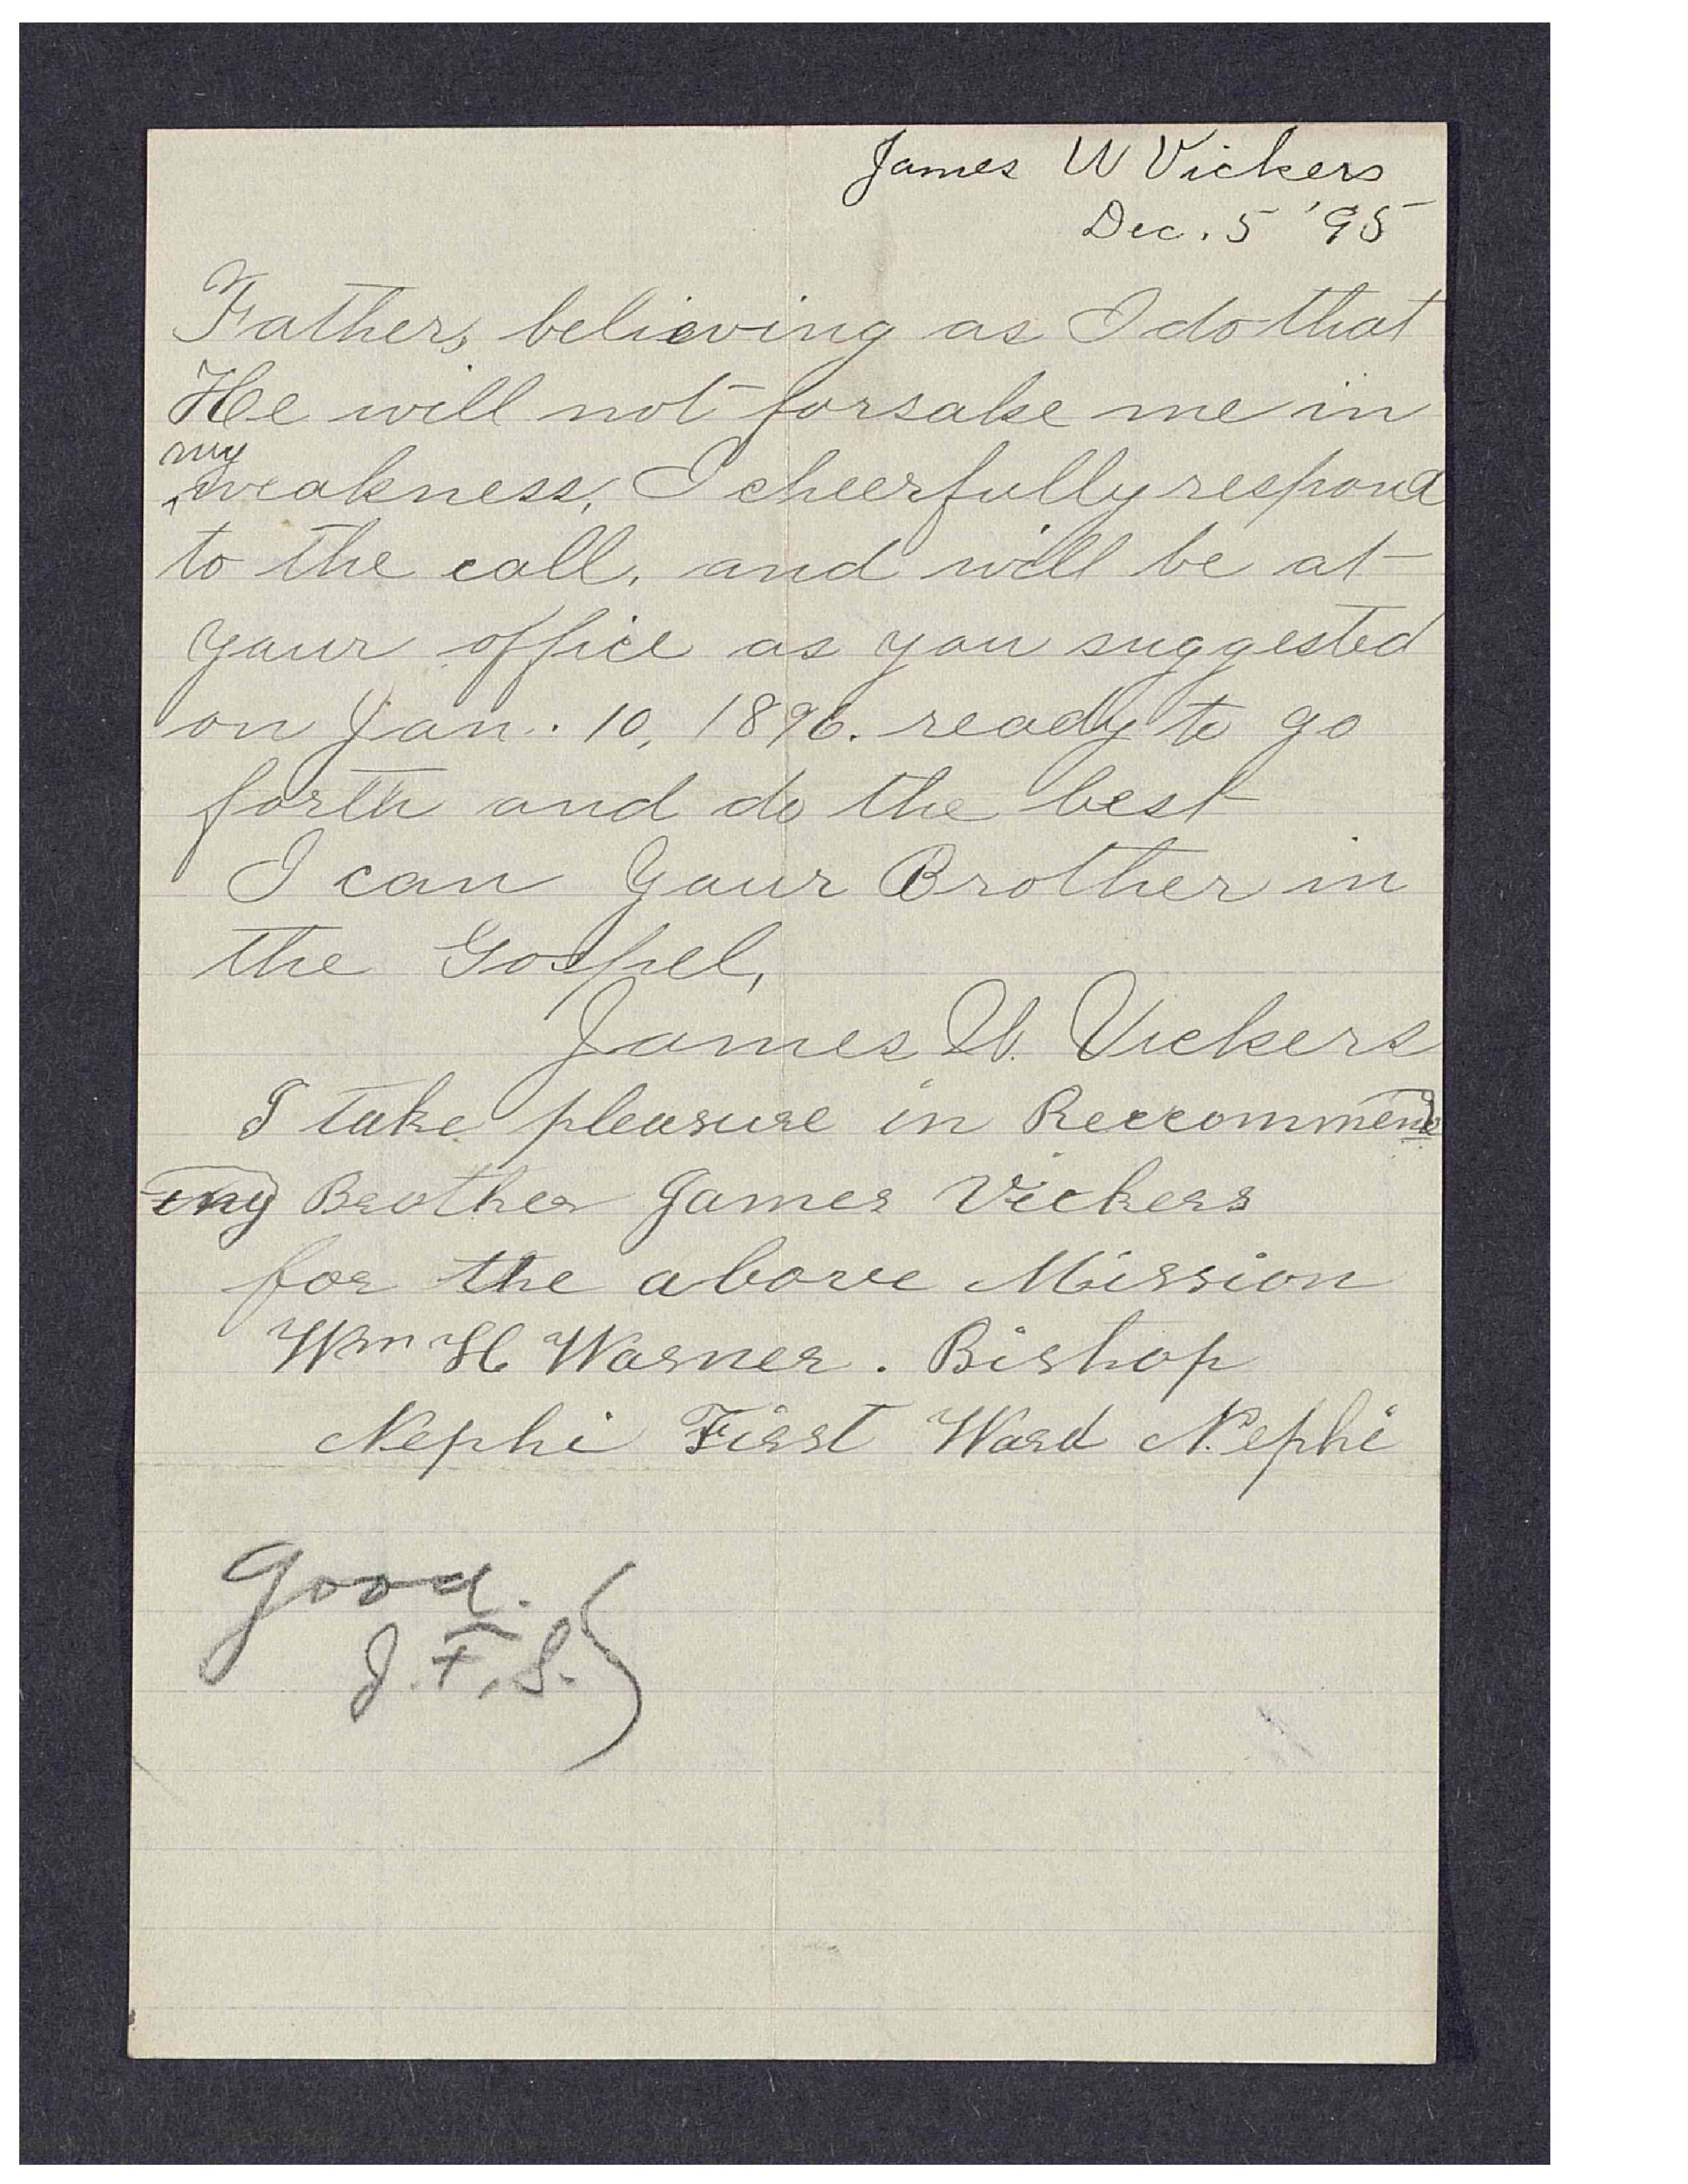 James W Vickers
Dec. 5 '95
Father, believing as I do that
He will not forsake me in
my
weakness, I cheerfully respond
to the call, and will be at
your office as you suggested
on Jan. 10, 1896. ready to go
forth and do the best
I can Your Brother in
the Gospel,
James W. Vickers
I take pleasure in Reccommend
ing Brother James Vickers
for the above Mission
Wm H Warner. Bishop
Nephi First Ward Nephi
Good.
J. F. S.